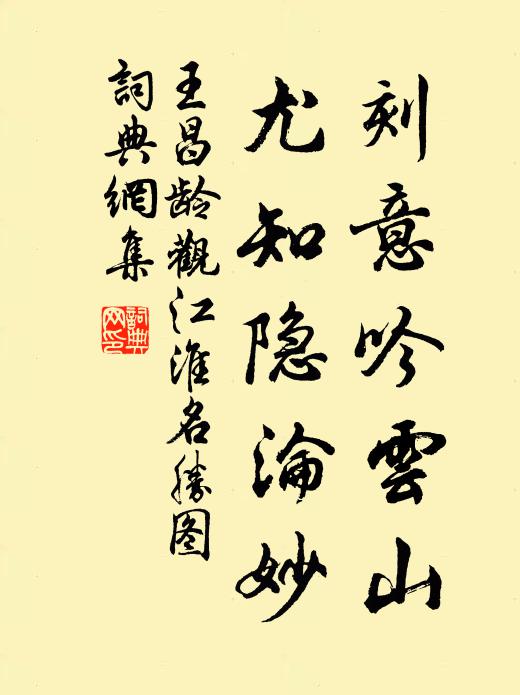 刻意吟雲山
尤知隐淪妙
王昌龄觀江淮名勝图
詞典網集
詞典
网印